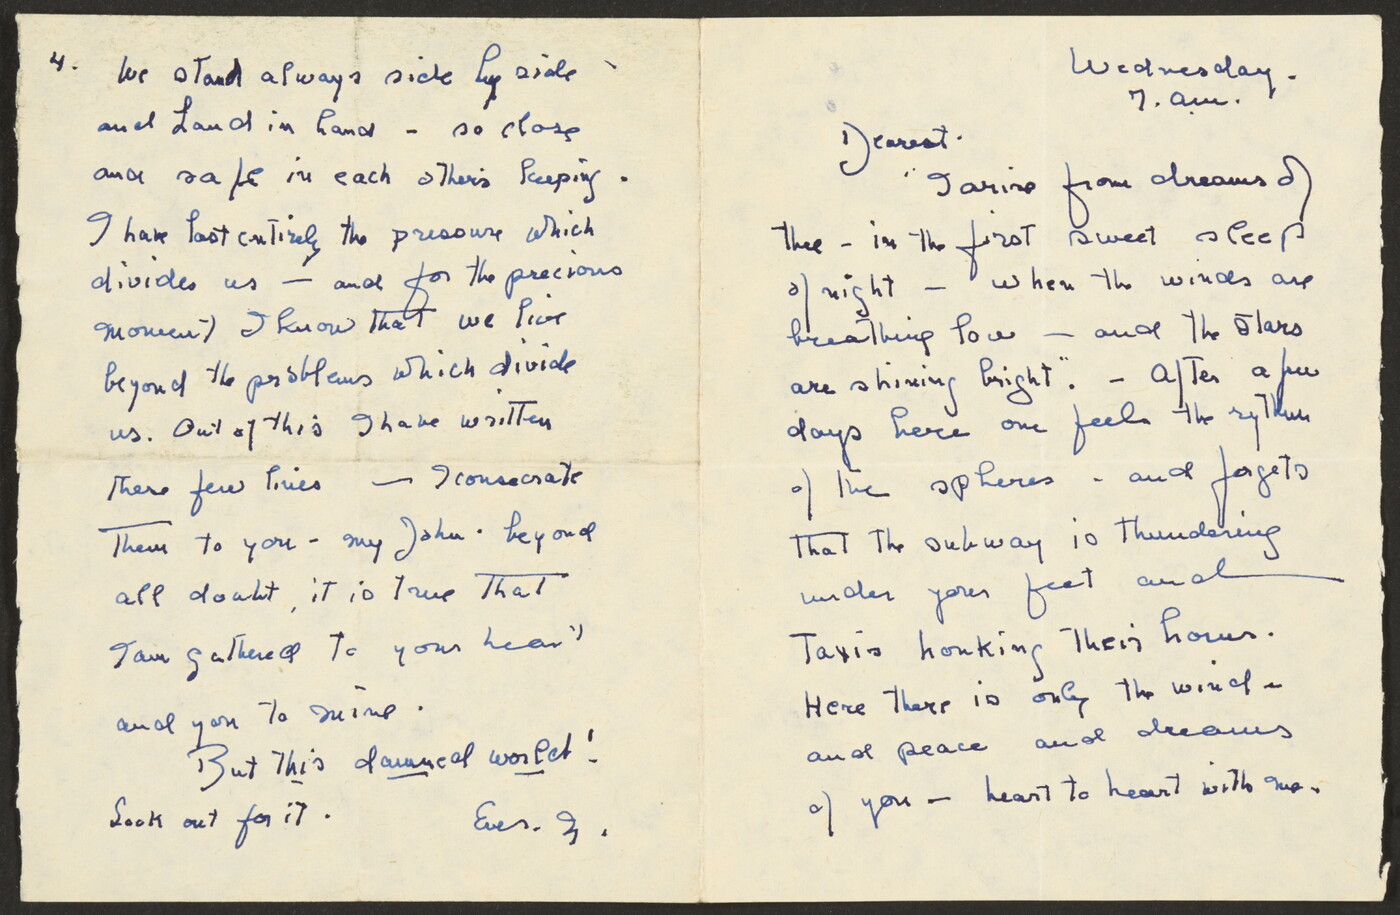 4. We stand always side by side
and hand in hand - so close
and safe in each others keeping.
I have lost entirely the pressure which
divides us — and for the precious
moment I know that we live
beyond the problems which divide
us. Out of this I have written
these few lines — I consecrate
them to you - my John. beyond
all doubt, it is true that
I am gathered to your heart
and you to mine.
But this damned world!
Look out for it.
Ever. I.
Wednesday.
7. am.
Dearest.
"I arise from dreams of
thee - in the first sweet sleep
of night - when the winds are
breathing low - and the stars
are shining bright". - After a few
days here one feels the rythm
of the spheres - and forgets
that the subway is thundering
under your feet and
Taxis honking their horns.
Here there is only the wind -
and peace and dreams
of you - heart to heart with me.